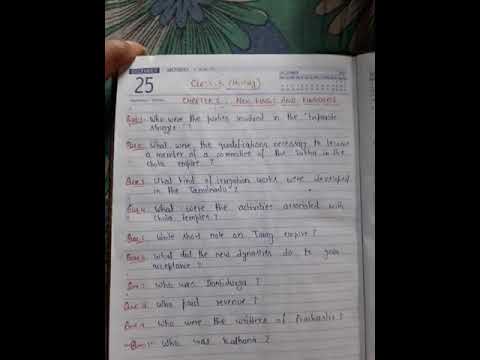 25
Class-7 (History)
CHAPTER 2: NEW KINGS AND KINGDOMS
Que.1 Who were the parties involved in the "tripartite
struggle"?
Que.2 What were the qualifications necessary to become
a member of a committee of the Sabha in the
chola empire?
Que.3 What kind of irrigation works were developed
in the Tamilnadu?
Que.4 What were the activities associated with
chola temples?
Que.5 Write short note on Tang empire?
Que.6 What did the new dynasties do to gain
acceptance?
Que.7 Who was Dantidurga?
Que.8 Who paid revenue?
Que.9 Who were the writters of Prashastis?
Que.10 Who was Kalhana?